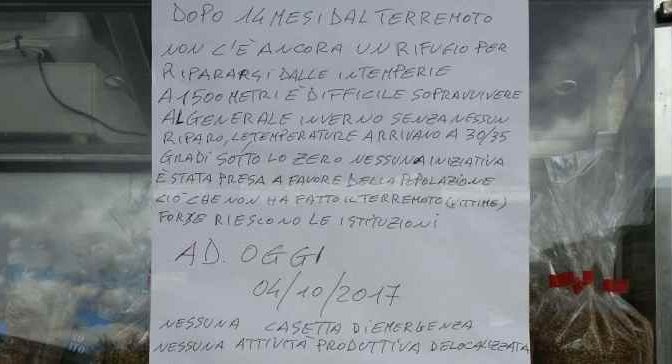 DOPO 14 MESI DAL TERREMOTO
NON C'È ANCORA UN RIFUGIO PER
RIPARARSI DALLE INTEMPERIE
A 1500 METRI È DIFFICILE SOPRAVVIVERE
AL GENERALE INVERNO SENZA NESSUN
RIPARO, LE TEMPERATURE ARRIVANO A 30/35
GRADI SOTTO LO ZERO NESSUNA INIZIATIVA
È STATA PRESA A FAVORE DELLA POPOLAZIONE
CIÒ CHE NON HA FATTO IL TERREMOTO (VITTIME)
FORSE RIESCONO LE ISTITUZIONI
AD. OGGI
04/10/2017
NESSUNA CASETTA DI EMERGENZA
NESSUNA ATTIVITÀ PRODUTTIVA DELOCALIZZATA